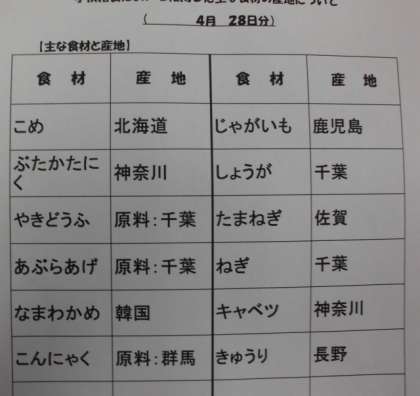 （ 4月 28日分）
【主な食材と産地】
食 材 産 地 食 材 産 地
こめ 北海道 じゃがいも 鹿児島
ぶたかたにく 神奈川 しょうが 千葉
やきどうふ 原料：千葉 たまねぎ 佐賀
あぶらあげ 原料：千葉 ねぎ 千葉
なまわかめ 韓国 キャベツ 神奈川
こんにゃく 原料：群馬 きゅうり 長野